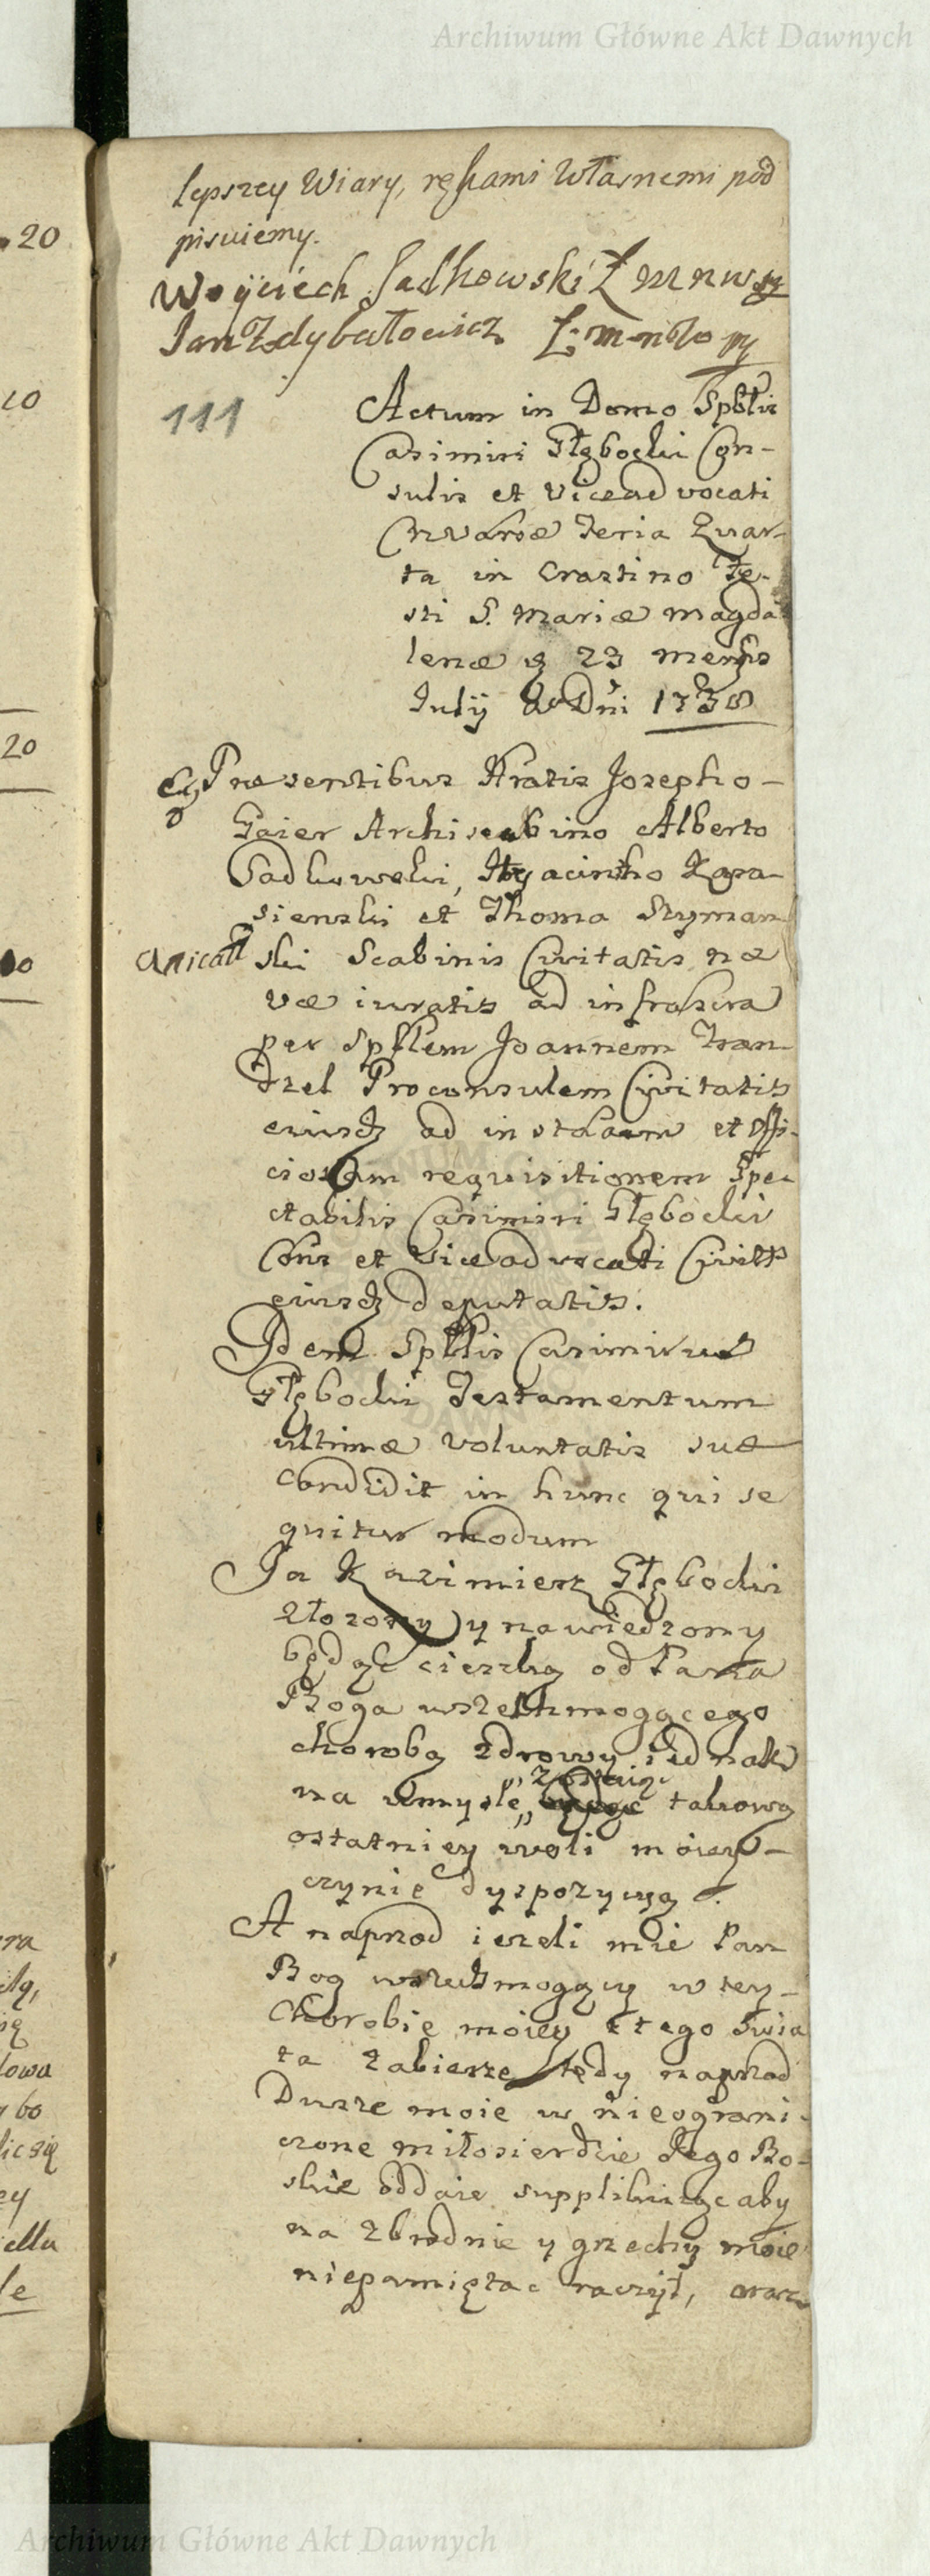 Archiwum Główne Akt Dawnych
lepszey Wiary, rękami Własnemi pod
pisuiemy.
Woyciech Sadkowski Ł m n w
Jan Zdybałowicz Ł: m-n
111
Actum in Domo Spblis
Casimiri Głębocki Con-
sulis et Viceadvocati
Feria Quar-
ta in Crastino Fe-
sti S. Mariæ Magda
lenæ 23 mensis
July Ao Dni 1738
Præsentibus Hratis Josepho -
Gaier Archiscabino Alberto
Sadkowski, Hyacintho Kra
sienski et Thoma Szyman
ski Scabinis Civitatis næ
væ iuratis ad infrascra
per Spblem Joannem Fran
drel Proconsulem Civitatis
eiusdɜ ad et offi-
ciosam requisitionem Spe-
ctabilis Casimiri Głębocki
Cons et Viceadvocati Civitts
eiusdɜ deputatis.
Idem Spblis Casimirus
Głębocki Testamentum
ultimæ voluntatis suæ
condidit in hunc qui se
quitur modum
Ja Kazimierz Głębocki
złozony y nawiedzony
będąc cieszką od Pana
Boga wszechmogącego
chorobą zdrowy iednak
na umysle, takową
ostatniey woli moiey -
czynię dyspozycyą.
A naprzod iezeli mie Pan
Bog wszechmogący w tey -
Chorobie moiey z tego swia
ta zabierze tedy naprzod
Dusze moie w nieograni-
czone miłosierdzie Jego Bo-
skie oddaie supplikuiąc aby
na zbrodnie y grzechy moie
niepamiętac raczył, oraz
20
10
20
00
Archiwum Główne Akt Dawnych